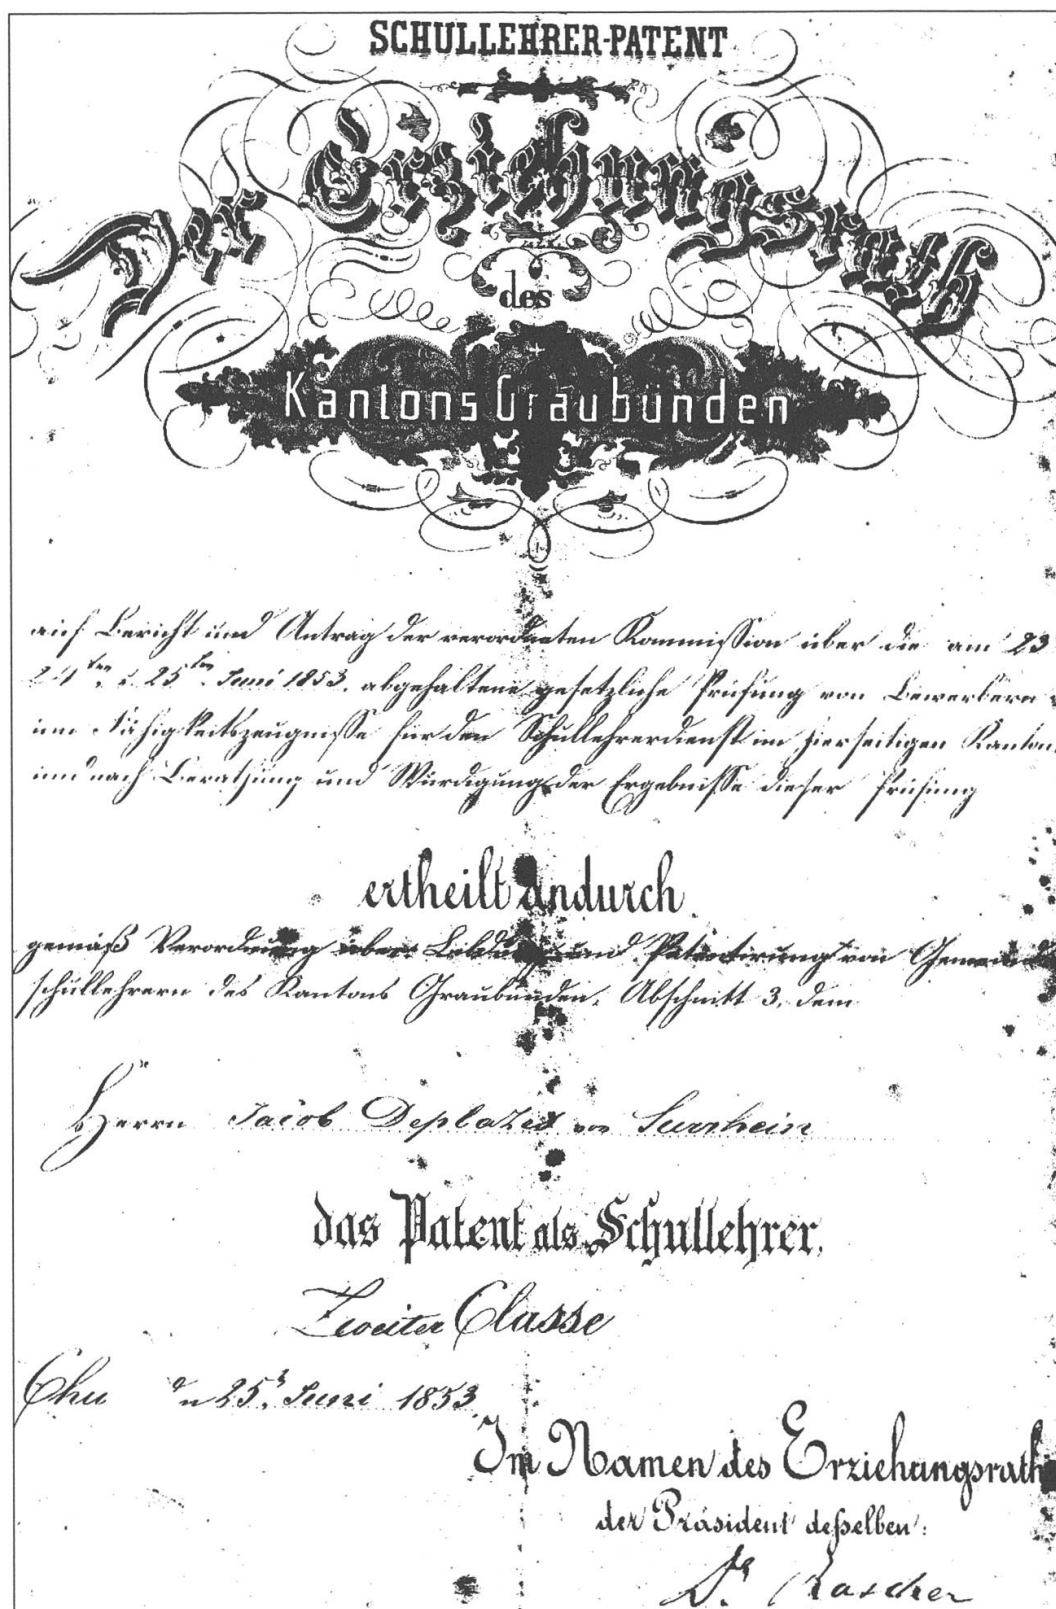 SCHULLEHRER-PATENT
Der Erziehungsrath
des
Kantons Graubünden
auf Bericht und Antrag der verordneten Kommission über die am 23
24ten u. 25ten Juni 1853. abgehaltene gesetzliche Prüfung von Bewerbern
um Fähigkeitszeugnisse für den Schullehrerdienst im hierseitigen Kanton,
und nach Berathung und Würdigung der Ergebnisse dieser Prüfung
ertheilt andurch
gemäß Verordnung über Bildung und Patentirung von Gemeinde
schullehrern des Kantons Graubünden, Abschnitt 3, dem
Herrn Jacob Deplazes von Surrhein
das Patent als Schullehrer,
Zweiter Classe
Chur den 25t. Juni 1853
Im Namen des Erziehungsrath
der Präsident deßelben:
Dr. Rascher